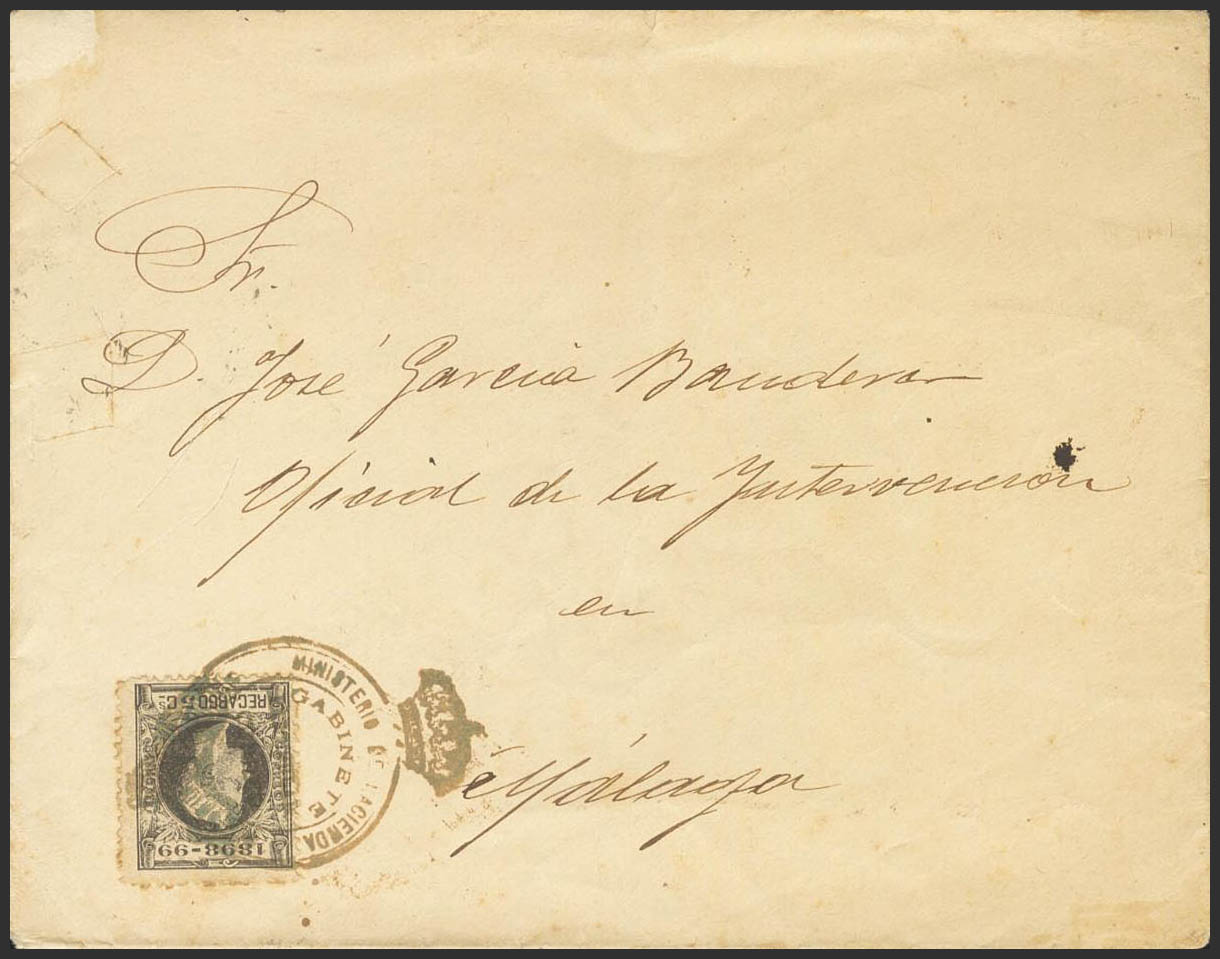 Sr.
D. José García Bandera
Oficial de la Intervención
en
Málaga
MINISTERIO DE HACIENDA
GABINETE
RECARGO 5 Cs
1898-99